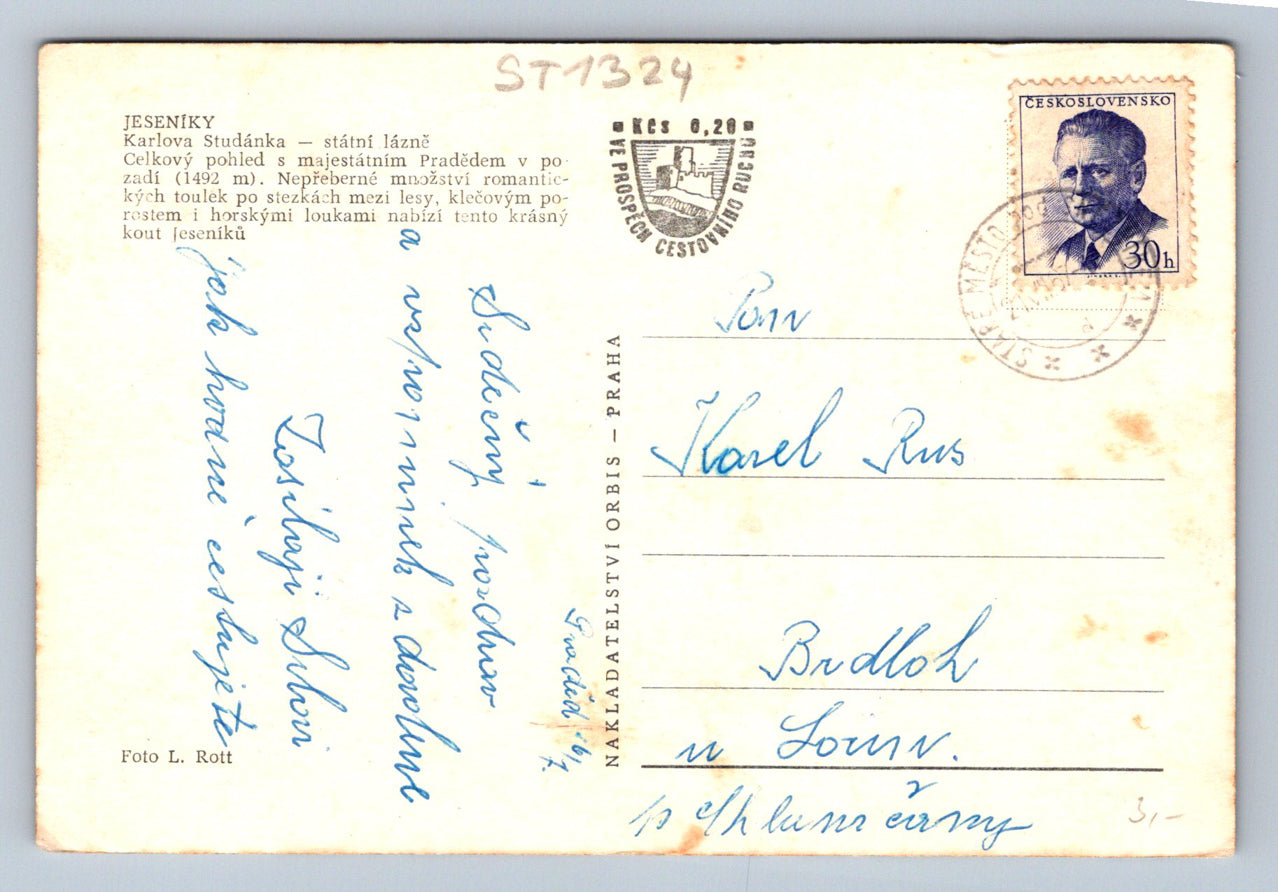 ST1324
JESENÍKY
Karlova Studánka — státní lázně
Celkový pohled s majestátním Pradědem v po-
zadí (1492 m). Nepřeberné množství romantic-
kých toulek po stezkách mezi lesy, klečovým po-
rostem i horskými loukami nabízí tento krásný
kout Jeseníků
Kčs 0,20
VE PROSPĚCH CESTOVNÍHO RUCHU
ČESKOSLOVENSKO
30h
STARÉ MĚSTO POD
Praděd
Srdečný pozdrav
a vzpomínek z dovolené
Zasílají
jak hodně cestujete
NAKLADATELSTVÍ ORBIS — PRAHA
Pan
Karel Rus
Brdloh
u Loun.
p Chlumčany
Foto L. Rott
3,-